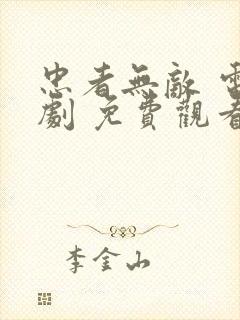 忠者無敵 電
劇 免費觀看
李金山